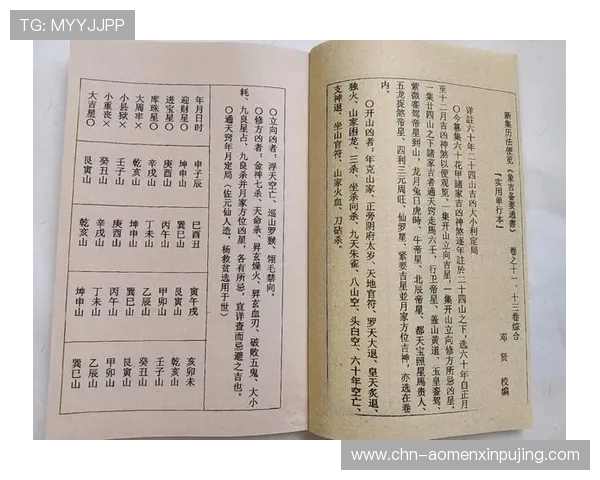 TG: MYYJJPP
新集历法便览《象吉备要通書》 卷之十一、十三卷综合
【实用单行本】
邓贤 校编
详註六十年二十四山吉凶大小利定局
◎今纂集六十花甲諸家吉凶神煞逐年註於二十四山之下,选六十年自正月
至十二月吉凶神煞以便观览。一集开山立向吉星,一集开山立向修方所忌凶星,
一集廿四山之下諸家吉者通天窍走馬六壬,行卫帝星、盖山黄道、玉皇銮駕、
紫微銮駕帝星到山,龙月兔日虎時、牛帝星、北辰帝星、都天宝照星馬贵人、
五龙捉煞帝星、四利三元周旺、仙罗星,紧要吉星並月家方位吉神,亦选在卷
内。
◎开山凶者:年克山家、正旁阴府太岁、天地官符、罗天大退、皇天炙退、
独火、山家困龙、三杀、坐杀向杀、九天朱雀、八山空、头白空、六十年空亡、
支神退、坐山官符、山家火血、刀砧杀。
◎立向凶者:浮天空亡、巡山罗睺、翎毛禁向。
◎修方凶者:金神七杀、天命杀、昇玄燥火、昇玄血刃、破败五鬼、大小
耗、九良星占、九良杀并月家方位凶星,各家所忌,宜详查而忌避之吉也。
◎通天窍年月定局(佐元仙人造,杨救贫选用于世)
年月日时 申子辰 巳酉丑 寅午戌 亥卯未
迎财星○ 坤申山 巽巳山 艮寅山 乾亥山
进宝星○ 庚酉山 丙午山 甲卯山 壬子山
库珠星○ 辛戌山 丁未山 乙辰山 癸丑山
大周牢× 乾亥山 坤申山 巽巳山 艮寅山
小县狱× 壬子山 庚酉山 丙午山 甲卯山
小重丧× 癸丑山 辛戌山 丁未山 乙辰山
大吉星○ 艮寅山 乾亥山 坤申山 巽巳山
https://www.chn-aomenxinpujing.com/